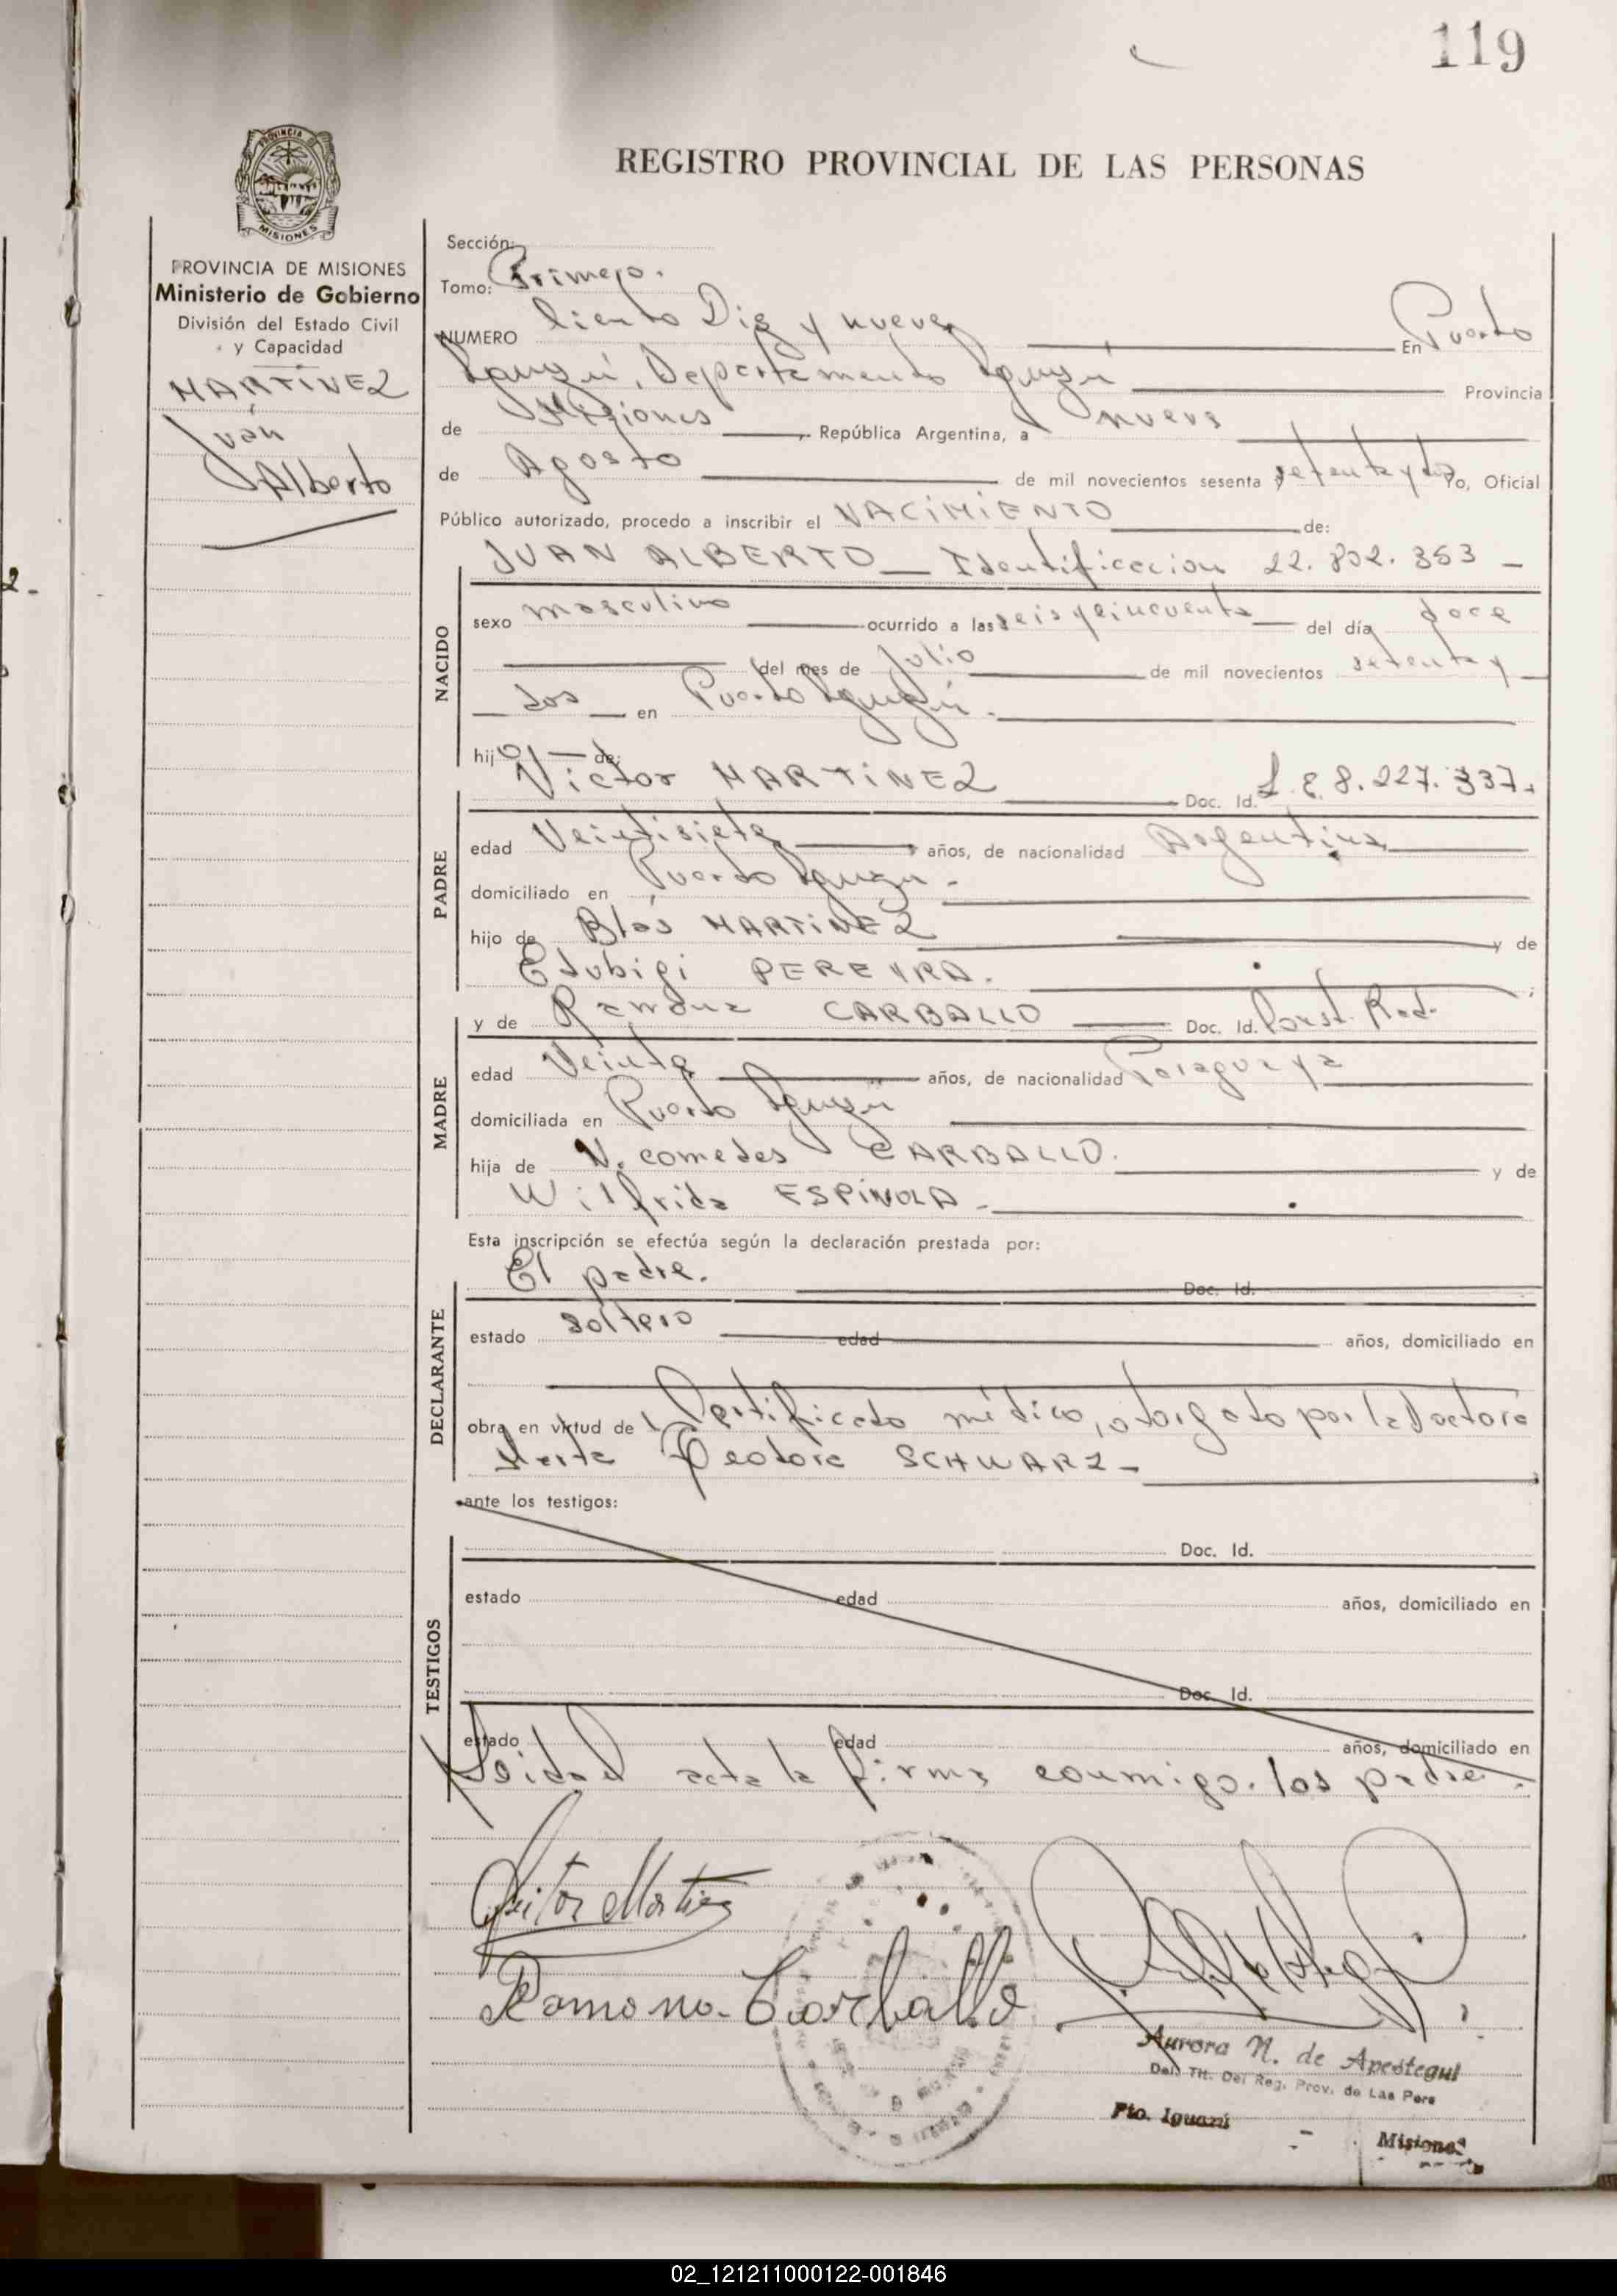 119
REGISTRO PROVINCIAL DE LAS PERSONAS
PROVINCIA
MISIONES
PROVINCIA DE MISIONES
Ministerio de Gobierno
División del Estado Civil
y Capacidad
MARTÍNEZ
Juan
Alberto
Sección:
Tomo: Primero.
NUMERO Ciento Diez y nueve En Puerto
Iguazú, Departamento Iguazú Provincia
de Misiones República Argentina, a nueve
de Agosto de mil novecientos sesenta y setenta y dos Yo, Oficial
Público autorizado, procedo a inscribir el NACIMIENTO de:
JUAN ALBERTO - Identificacion 22.802.353 -
NACIDO
sexo masculino ocurrido a las seis y cincuenta del día doce
del mes de Julio de mil novecientos setenta y
dos en Puerto Iguazú.
hijo de:
Victor MARTINEZ Doc. Id. L.E. 8.227.337.
PADRE
edad Veintisiete años, de nacionalidad Argentina
domiciliado en Puerto Iguazú -
hijo de Blás MARTINEZ y de
Edubigi PEREYRA.
y de Ramona CARBALLO Doc. Id. Const. Rad.
MADRE
edad Veinte años, de nacionalidad Paraguaya
domiciliada en Puerto Iguazú
hija de N.comedes CARBALLO. y de
Wilfrida ESPÍNOLA -
Esta inscripción se efectúa según la declaración prestada por:
El padre. Doc. Id.
DECLARANTE
estado soltero edad años, domiciliado en
obra en virtud de Certificado médico, otorgado por la Doctora
Marta Teodora SCHWARZ -
ante los testigos:
TESTIGOS
Doc. Id.
estado edad años, domiciliado en
Doc. Id.
estado edad años, domiciliado en
Leida el acta la firma conmigo. los padre.
Victor Martinez
Ramona Carballo
Aurora N. de Apestegui
Del. Tit. Del Reg. Prov. de Las Pers
Pto. Iguazú
Misiones
02_121211000122-001846